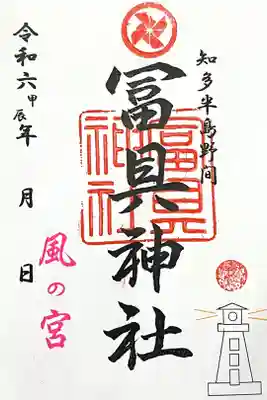 知多半島野間
冨具神社
冨具
神社
令和六甲辰年　月　日
風の宮